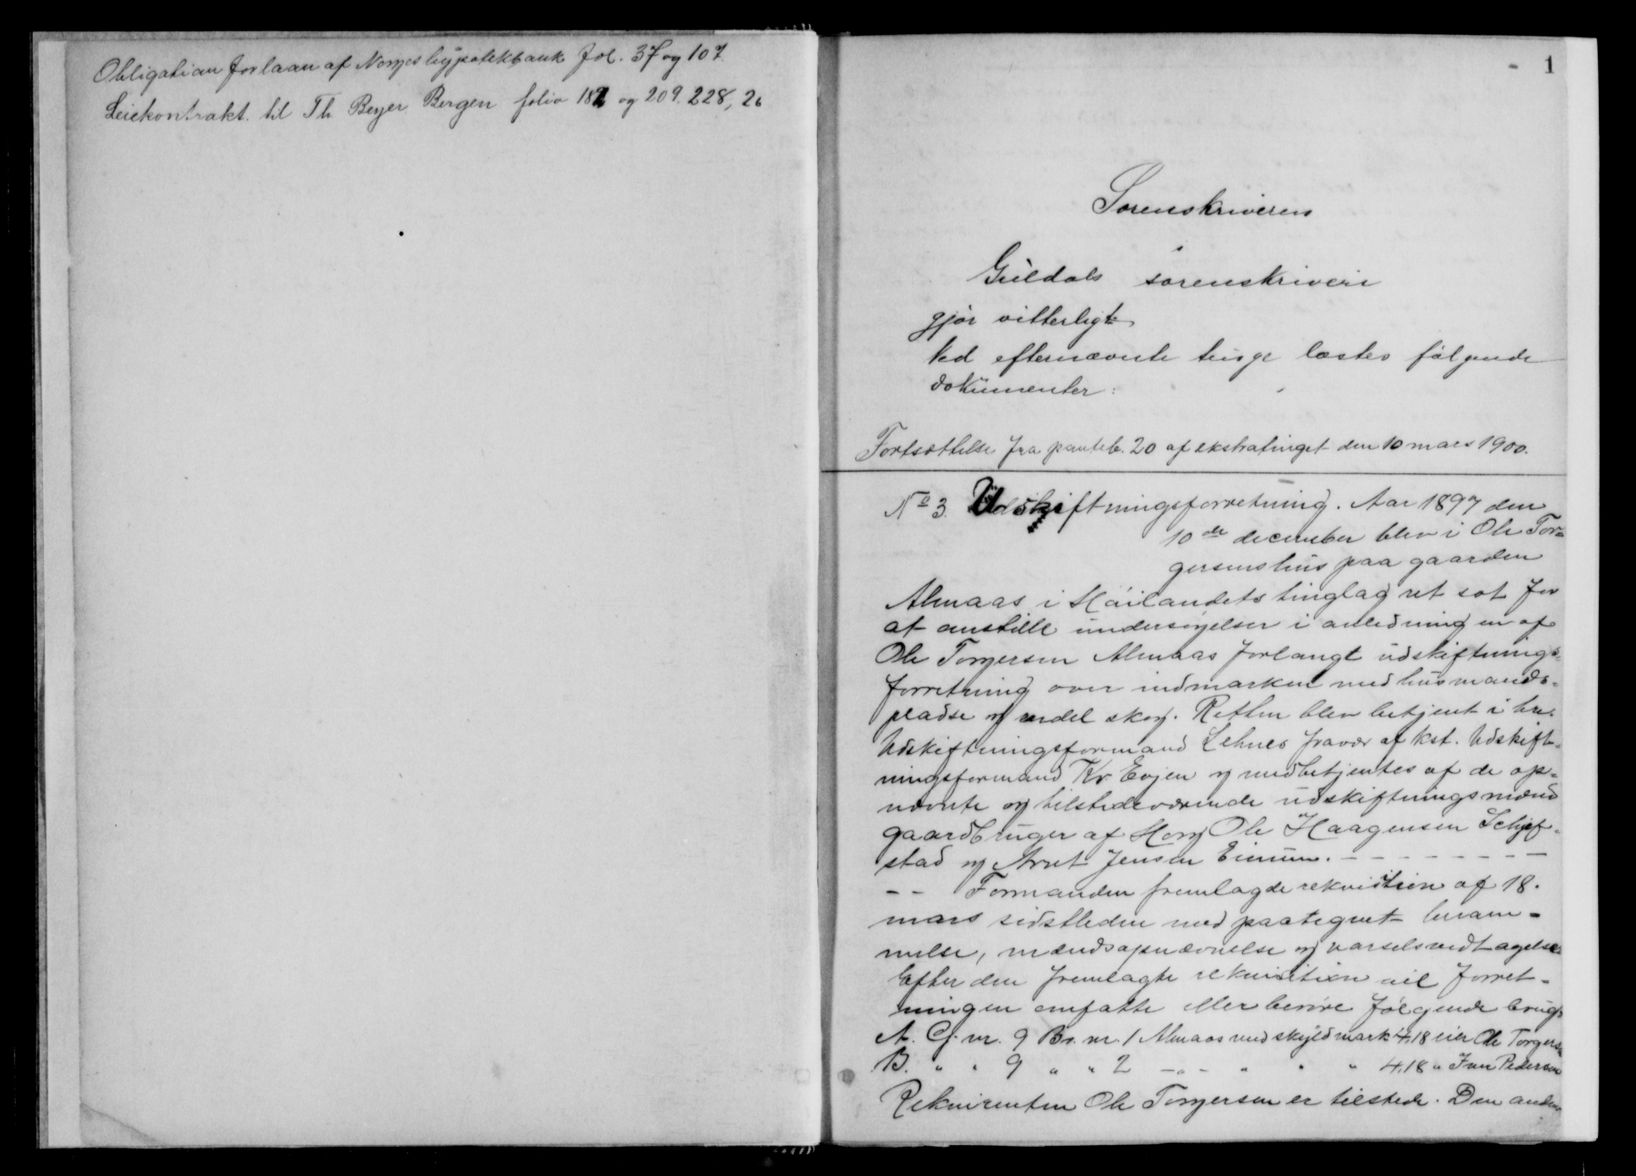 Obligation for laan af Norges hypotekbank fol. 37 og 107.
Leiekontrakt til Th. Beyer Bergen folio 182 og 209. 228, 26
1
Sorenskriveren
i
Guldals sorenskriveri
gjør vitterligt
Ved efternævnte tinge læstes følgende
dokumenter:
Fortsættelse fra panteb. 20 af ekstratinget den 10 mars 1900.
No 3. Udskiftningsforretning. Aar 1897 den
10de december blev i Ole Tor=
gersens hus paa gaarden
Almaas i Høilandets tinglag ret sat for
at anstille undersøgelser i anledning en af
Ole Torgersen Almaas forlangt udskiftnings=
forretning over indmarken med husmands=
pladse og endel skog. Retten blev betjent i hr.
Udskiftningsformand Lehnes fravær af kst. Udskift=
ningsformand Kr. Evjen og medbetjentes af de op=
nævnte og tilstedeværende udskiftningsmænd
gaardbruger af Horg Ole Haagensen Schjef=
stad og Arnt Jensen Einum. - - - - - - -
- - Formanden fremlagde rekvisition af 18.
mars sidstleden med paategnet beram=
melse, mændsopnævnelse og varselsvedtagelse.
Efter den fremlagte rekvisition vil forret=
ningen omfatte eller berøre følgende brug:
A. G. nr. 9 Br. nr. 1 Almaas med skyldmark 4,18 eier Ole Torgersen
B. " " 9 " " 2 - " - " " " 4,18 " Iver Pedersen
Rekvirenten Ole Torgersen er tilstede. Den anden